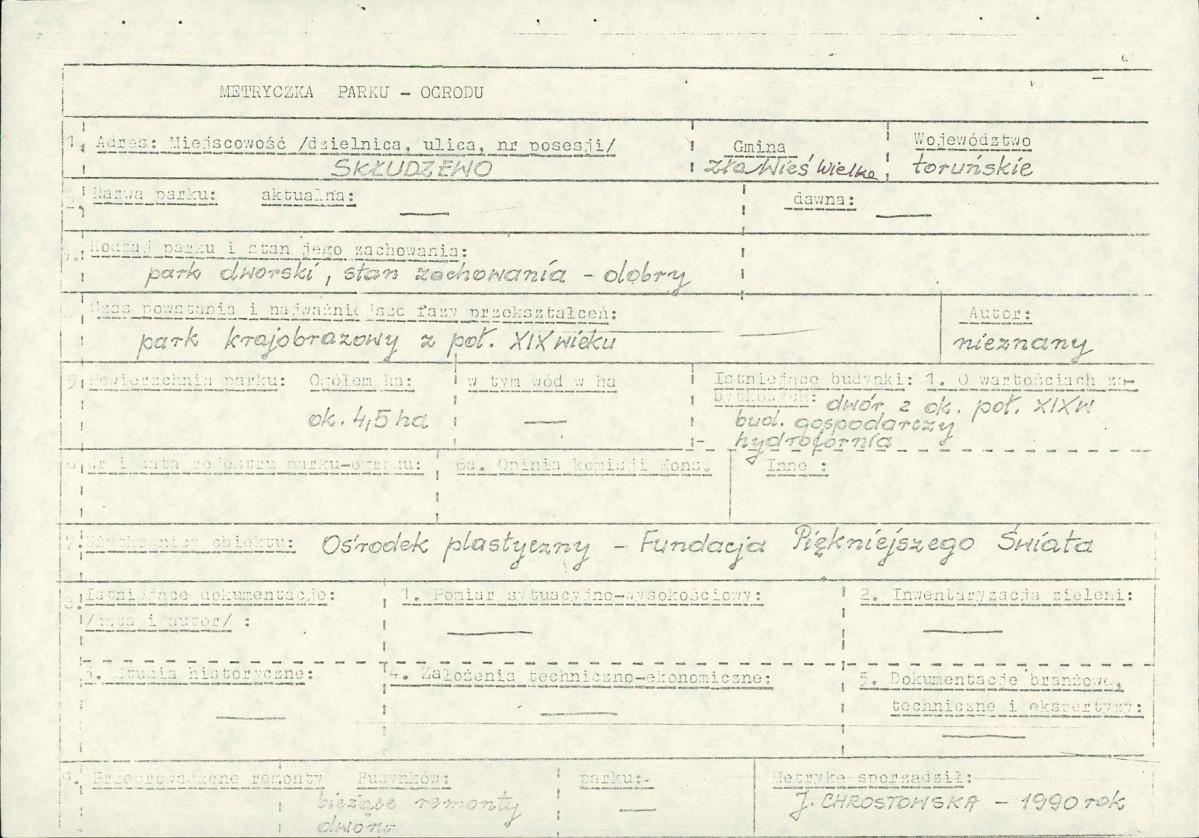 METRYCZKA PARKU - OGRODU
1. Adres: Miejscowość /dzielnica, ulica, nr posesji/
SKŁUDZEWO
Gmina
Zła Wieś Wielka
Województwo
toruńskie
2. Nazwa parku: aktualna: —
dawna: —
3. Rodzaj parku i stan jego zachowania:
park dworski, stan zachowania - dobry
Czas powstania i najważniejsze fazy przekształceń:
park krajobrazowy z poł. XIX wieku
Autor:
nieznany
5. Powierzchnia parku: Ogółem ha:
ok. 4,5 ha
w tym wód w ha
—
Istniejące budynki: 1. O wartościach za-
bytkowych: dwór z ok. poł. XIX w
bud. gospodarczy
hydrofornia
6. Nr i data rejestru parku-ogrodu:
6a. Opinia komisji Kons.
Inne :
7. Użytkownicy obiektu: Ośrodek plastyczny - Fundacja Piękniejszego Świata
8. Istniejące dokumentacje:
/data i autor/ :
1. Pomiar sytuacyjno-wysokościowy:
—
2. Inwentaryzacja zieleni:
—
3. Studia historyczne:
—
4. Założenia techniczno-ekonomiczne:
—
5. Dokumentacje branżowe,
techniczne i ekspertyzy:
—
9. Przeprowadzone remonty Budynków:
bieżące remonty
dworu
parku:-
—
Metrykę sporządził:
J. CHROSTOWSKA - 1990 rok